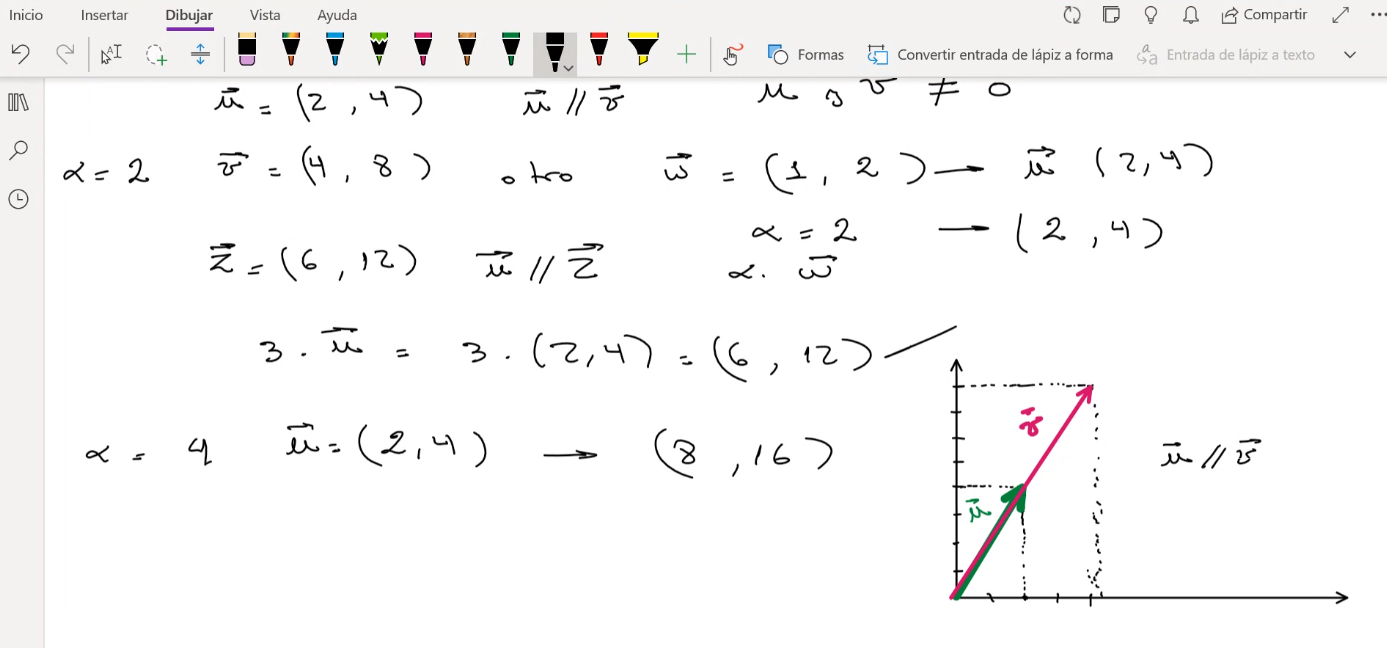 Inicio Insertar Dibujar Vista Ayuda Compartir
Formas Convertir entrada de lápiz a forma Entrada de lápiz a texto
u⃗ = (2, 4) u⃗ // v⃗ u y v ≠ 0
α = 2 v⃗ = (4, 8) otro w⃗ = (1, 2) — u⃗ (2, 4)
α = 2 — (2, 4)
z⃗ = (6, 12) u⃗ // z⃗ α. w⃗
3 . u⃗ = 3 . (2, 4) = (6, 12)
α = 4 u⃗ = (2, 4) → (8, 16)
v⃗
u⃗ // v⃗
u⃗